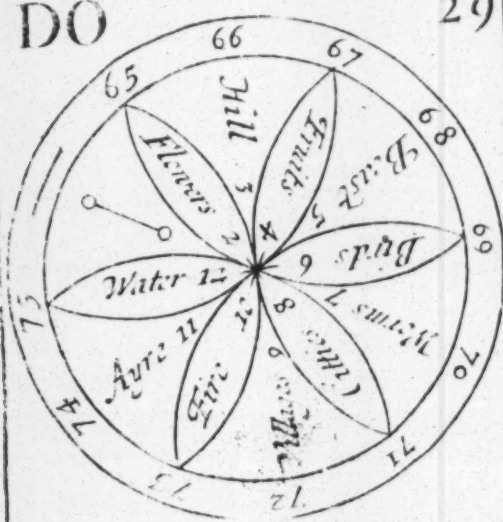 DO
29
65
66
67
68
69
70
71
72
73
74
75
Flowers 2
Hill 3
Fruits 4
Beast 5
Birds 6
Worms 7
Citties 8
Fire
Ayre 11
Water 12